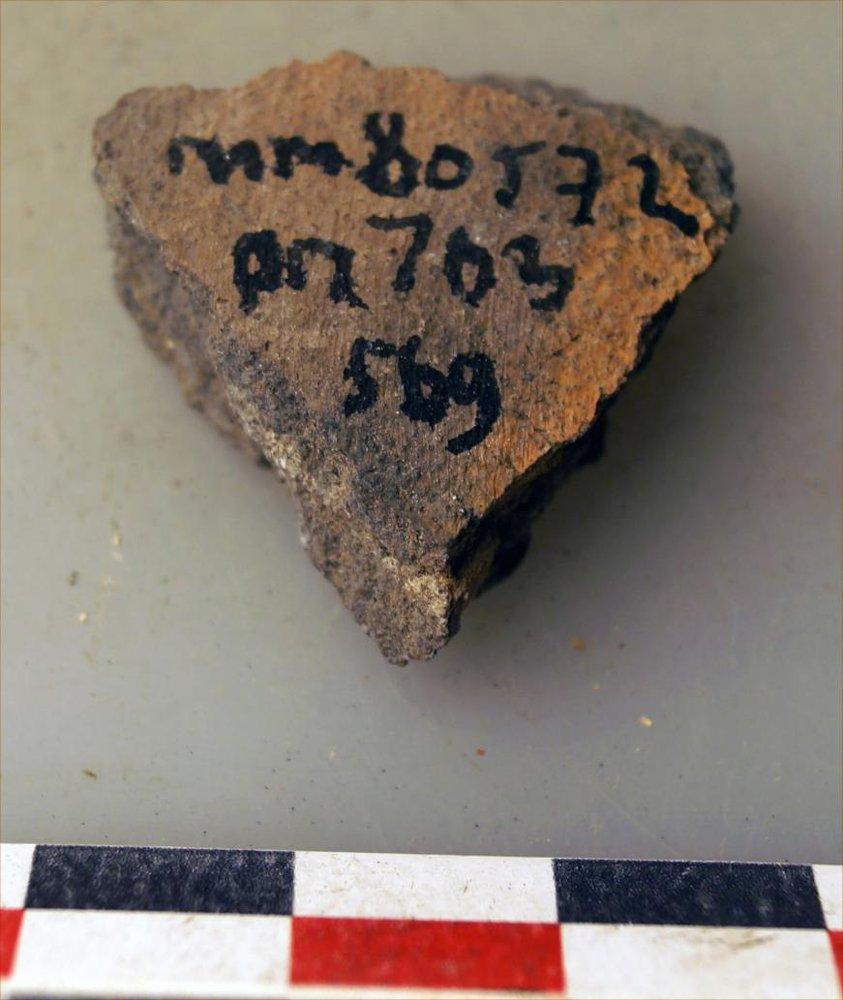 mm80572
pn703
569